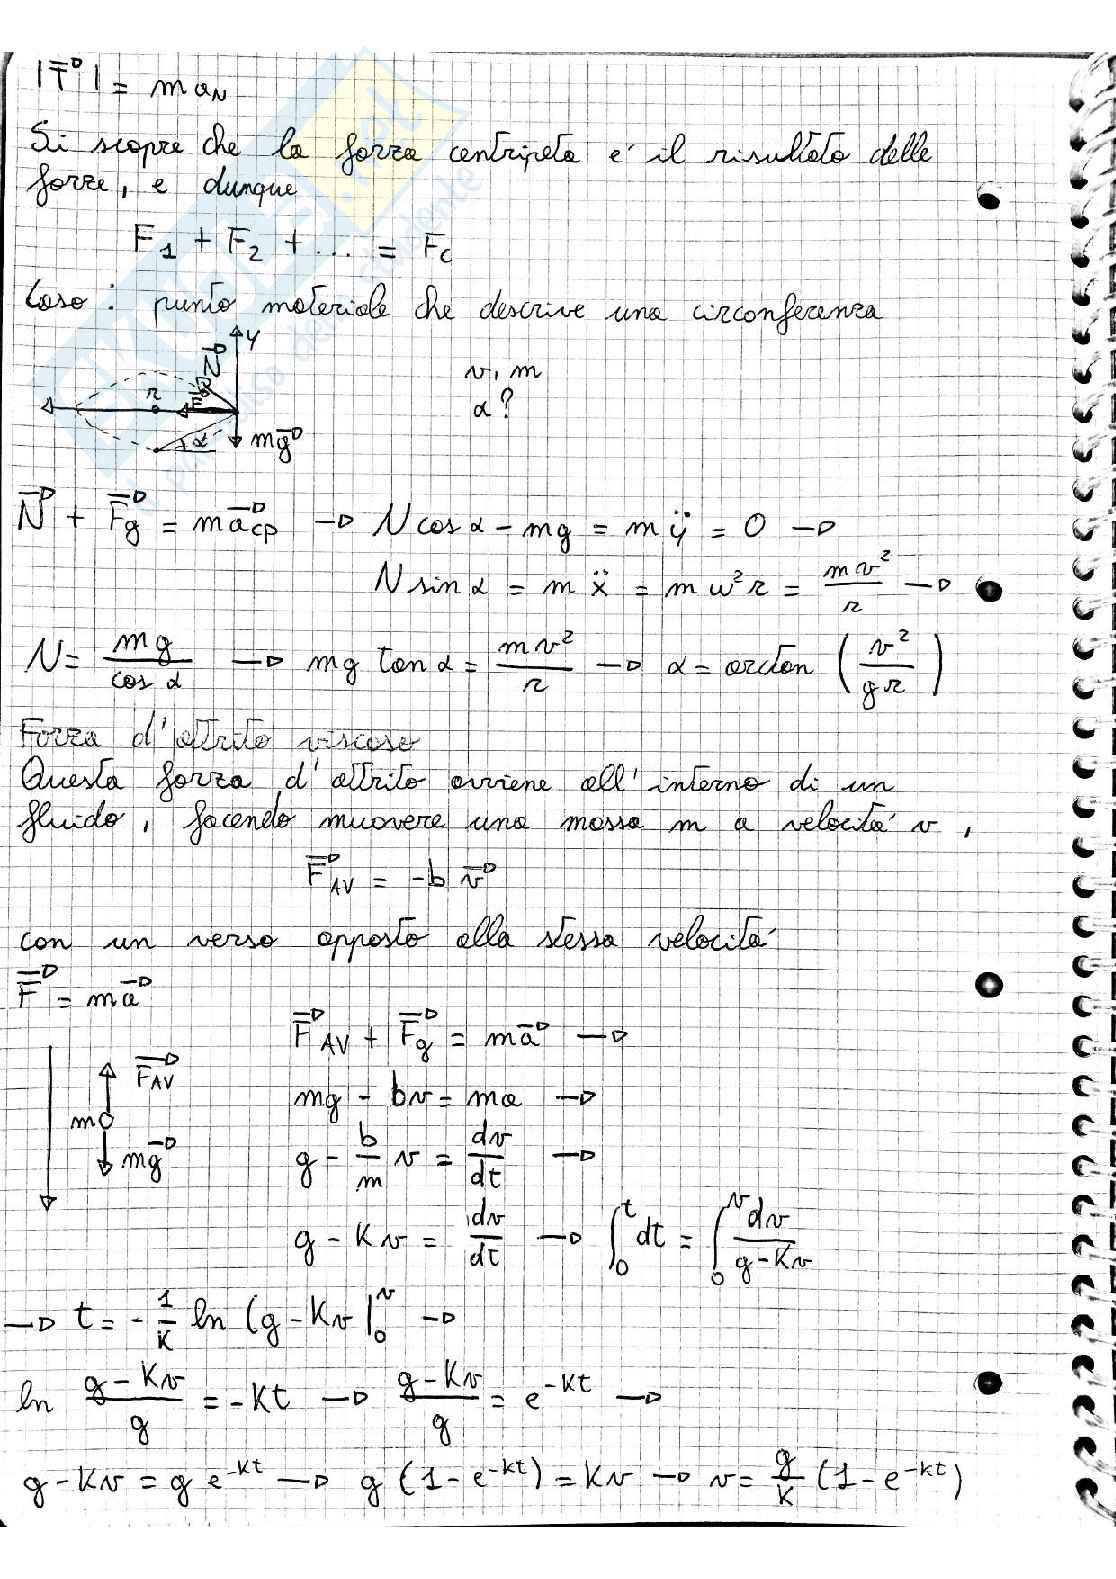 |T⃗| = m aN
Si scopre che la forza centripeta e' il risultato delle
forze, e dunque
F₁ + F₂ + ... = Fc
Caso: punto materiale che descrive una circonferenza
y
N⃗
r
F
α
mg⃗
v, m
α?
N⃗ + F⃗g = m a⃗cp → N cos α - mg = m ÿ = 0 →
N sin α = m ẍ = m ω² r = mv²/r →
N = mg/cos α → mg tan α = mv²/r → α = arctan (v²/gr)
Forza d'attrito viscoso
Questa forza d'attrito avviene all'interno di un
fluido, facendo muovere una massa m a velocita' v,
F⃗AV = -b v⃗
con un verso opposto alla stessa velocita'
F⃗ = m a⃗
F⃗AV + F⃗g = m a⃗ →
F⃗AV
m
mg⃗
mg - bv = ma →
g - b/m v = dv/dt →
g - Kv = dv/dt → ∫₀ᵗ dt = ∫₀ᵛ dv/(g-Kv)
→ t = - 1/K ln (g - Kv |₀ᵛ →
ln (g-Kv)/g = -Kt → (g-Kv)/g = e^-Kt →
g - Kv = g e^-Kt → g (1 - e^-Kt) = Kv → v = g/K (1 - e^-Kt)